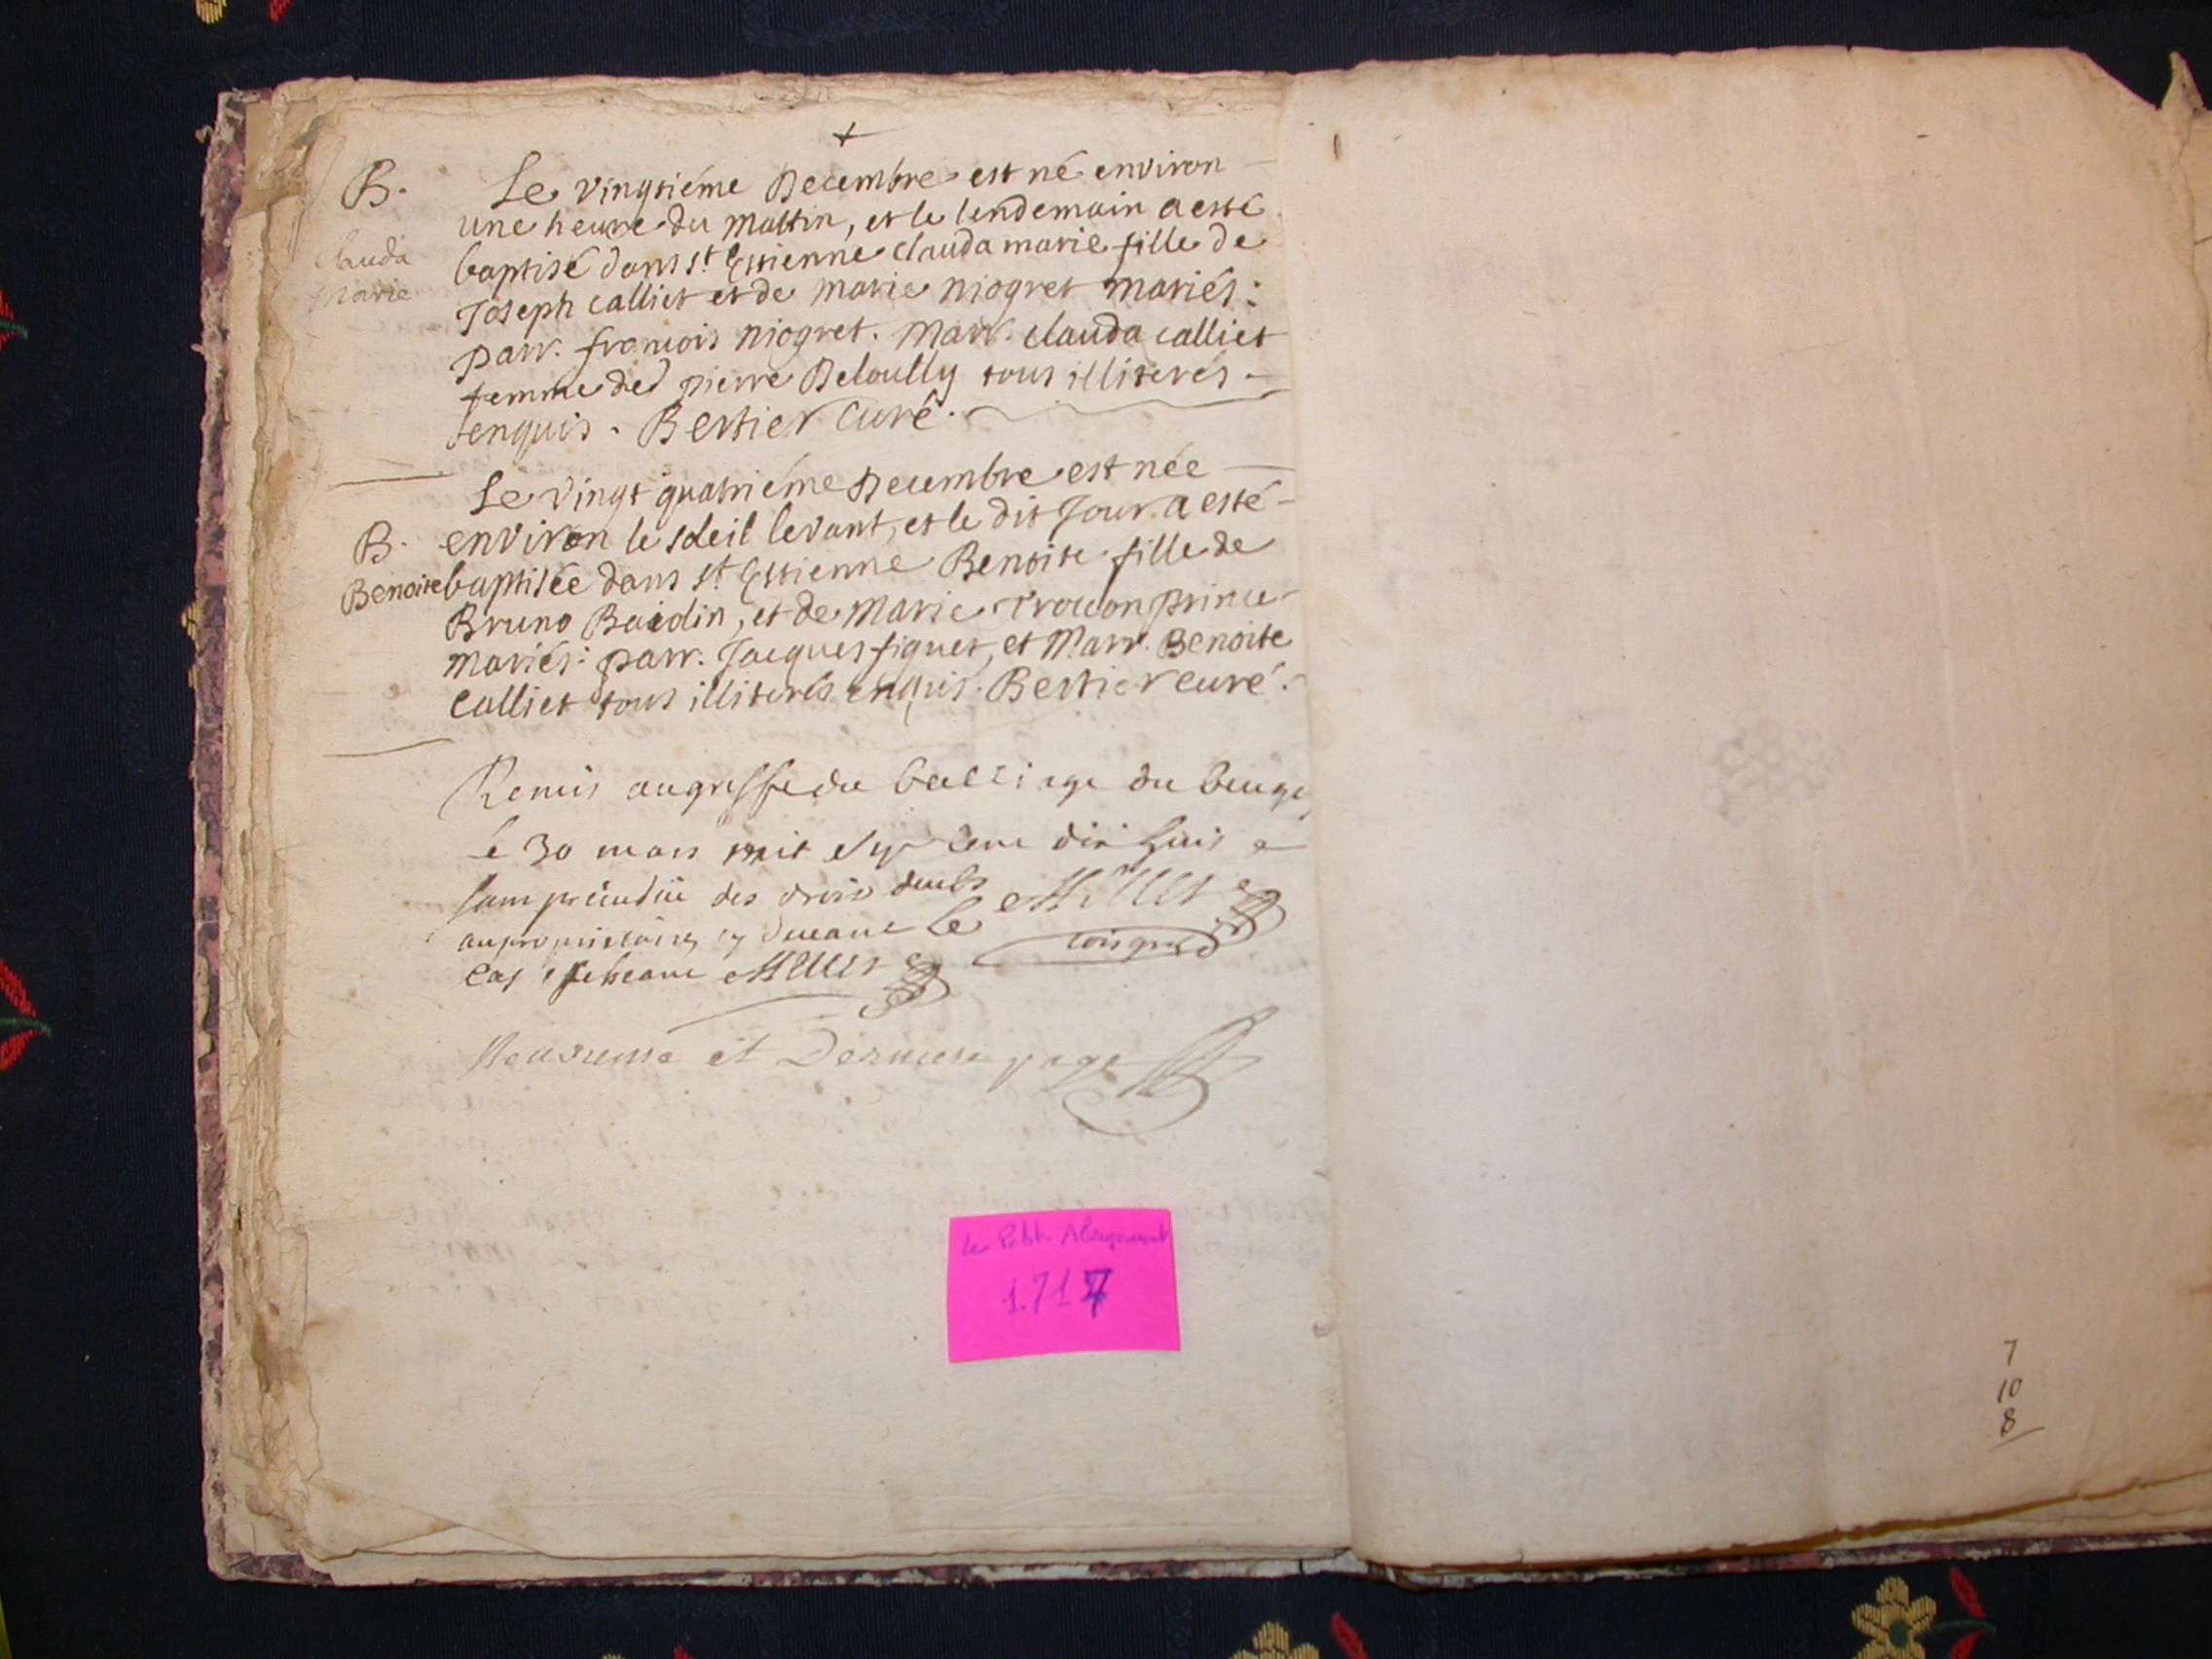 B. Le vingtiéme Decembre est né environ
une heure du mattin, et le lendemain a esté
clauda baptisé dans st Estienne clauda marie fille de
marie Joseph calliet et de marie niogret mariés:
parr. francois niogret. Marr. clauda calliet
femme de pierre Beloully tous illiterés
enquis. Bertier Curé.
Le vingt quatriéme Decembre est née
B. environ le soleil levant, et le dit Jour a esté
Benoite baptisée dans st Estienne Benoite fille de
Bruno Baidin, et de Marie prince
mariés: parr. Jacques figuet, et Marr. Benoite
Calliet tous illiterés enquis. Bertier curé.
Remis au greffe du balliage du beugey
le 30 mars mil sept cent dix huit
sans prejudice des droits deubs Millet
le
cas Millet
et Derniere page
Le Petit Abergement
1.717
7
10
8